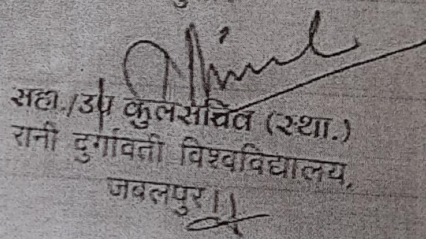 सहा./उप कुलसचिव (स्था.)
रानी दुर्गावती विश्वविद्यालय,
जबलपुर।।